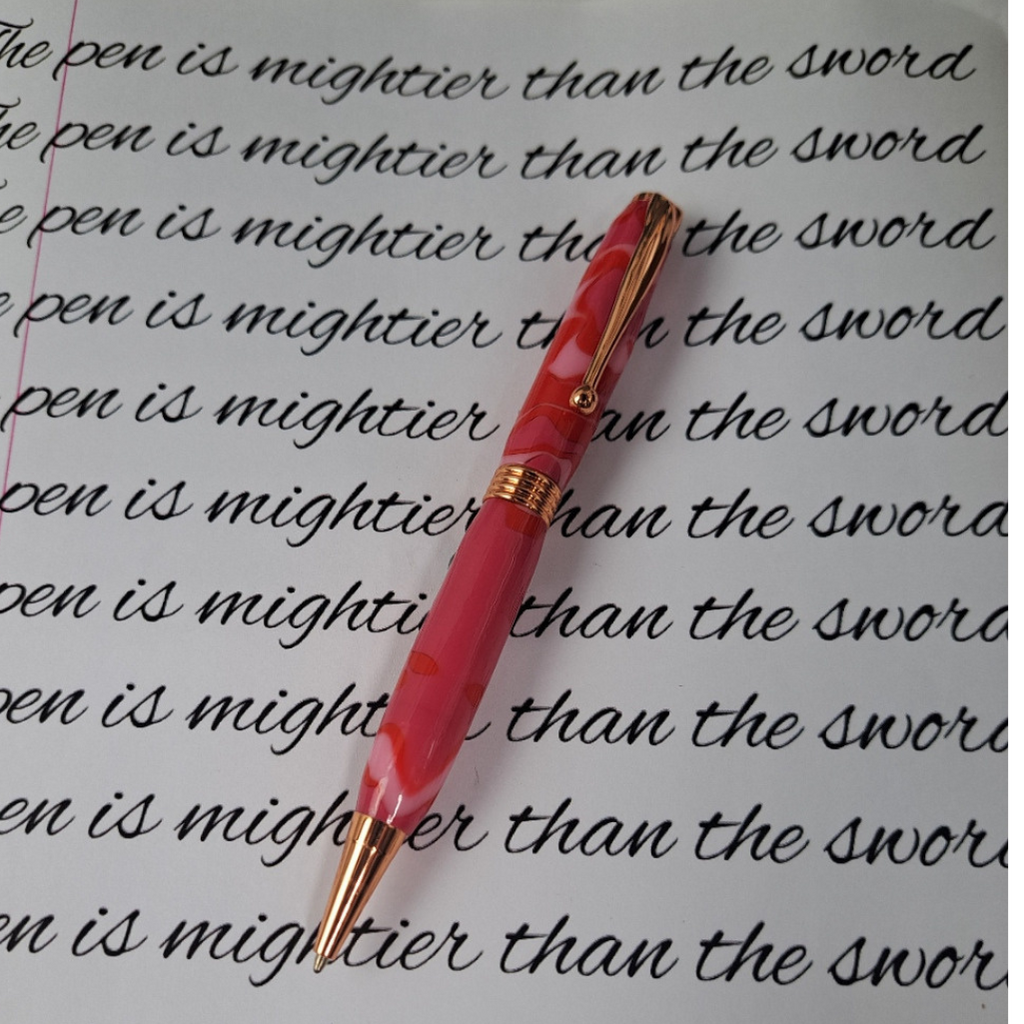 The pen is mightier than the sword
The pen is mightier than the sword
pen is mightier the sword
pen is mightier the sword
pen is mightier the sword
pen is mightier than the sword
pen is than the sword
is than the sword
is than the
is mightier than the